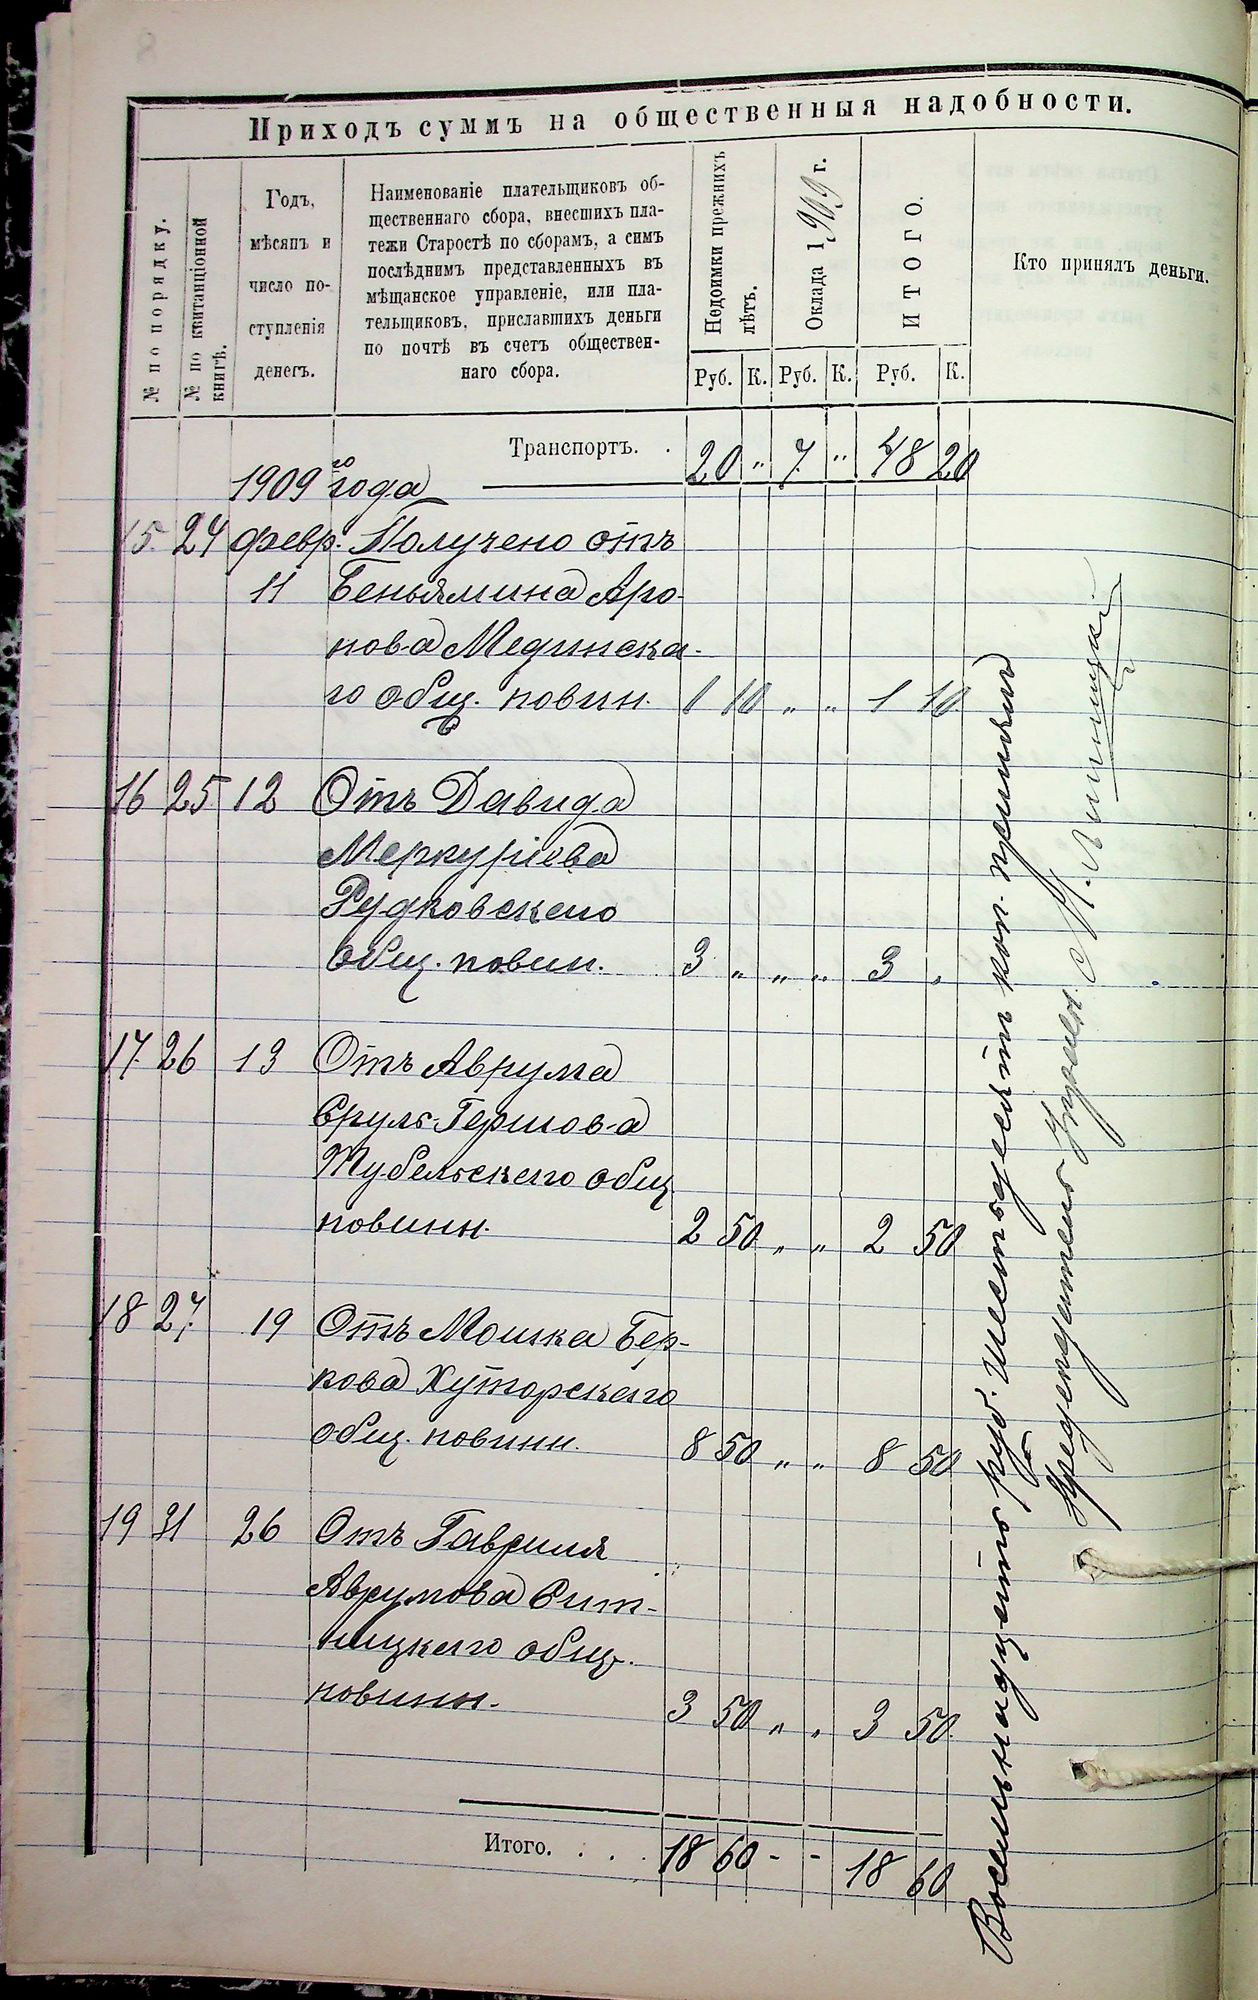 Приходъ суммъ на общественныя надобности.
№ по порядку.
№ по квитанціонной книгѣ.
Годъ,
мѣсяцъ и
число по-
ступленія
денегъ.
Наименованіе плательщиковъ об-
щественнаго сбора, внесшихъ пла-
тежи Старостѣ по сборамъ, а симъ
послѣднимъ представленныхъ въ
мѣщанское управленіе, или пла-
тельщиковъ, приславшихъ деньги
по почтѣ въ счетъ обществен-
наго сбора.
Недоимки прежнихъ лѣтъ.
Оклада 1909 г.
ИТОГО.
Кто принялъ деньги.
Руб. К. Руб. К. Руб. К.
Транспортъ. . 20 " 7 " 48 20
1909 го года
15 24 февр. Получено отъ
11 Беньямина Аро-
нова Мединска-
го общ. повин. 1 10 " " 1 10
16 25 12 Отъ Давида
Меркуріева
Рудковскаго
общ. повин. 3 " " " 3 "
17 26 13 Отъ Аврума
Сруль-Гершова
Тубельскаго общ
повинн. 2 50 " " 2 50
18 27 19 Отъ Мошка Бер-
кова Хуторскаго
общ. повинн. 8 50 " " 8 50
19 31 26 Отъ Гавриля
Аврумова Сит-
ницкаго общ.
повинн. 3 50 " " 3 50
Итого. . . . 18 60 - - 18 60
Восемьнадцать руб. шестьдесятъ коп. принялъ